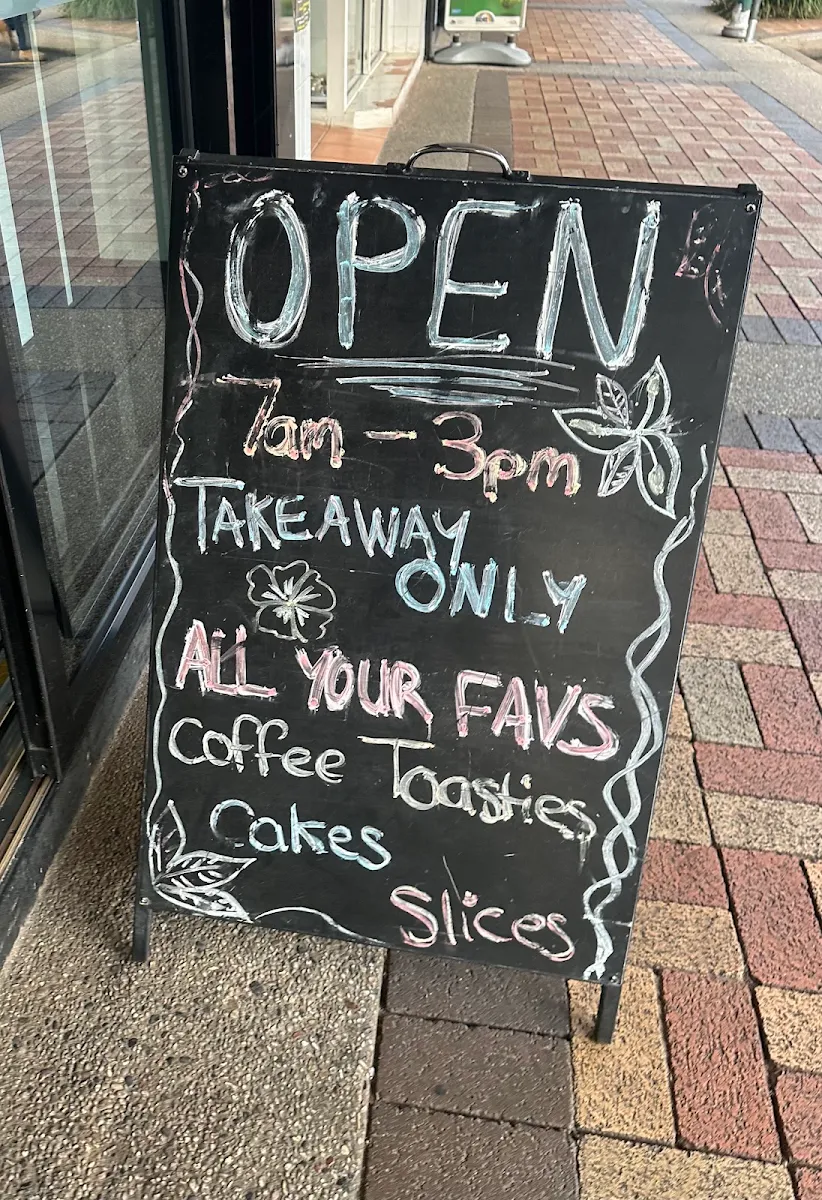 OPEN
7am - 3pm
TAKEAWAY
ONLY
ALL YOUR FAVS
Coffee Toasties
Cakes
Slices